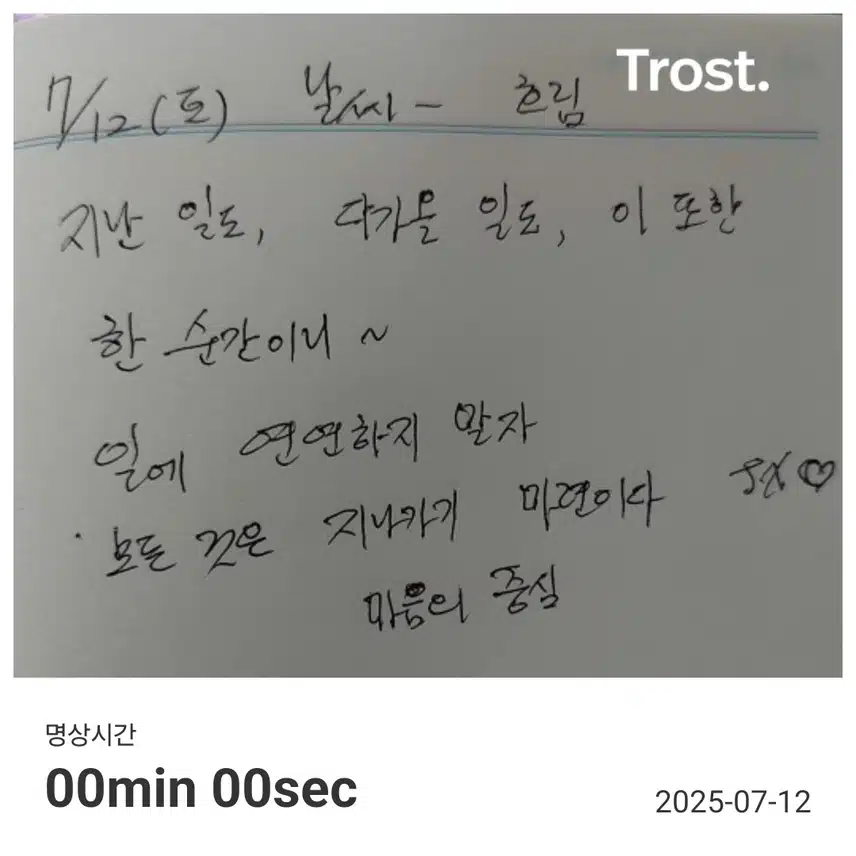 Trost.
7/12(토) 날씨 - 흐림
지난 일도, 다가올 일도, 이 또한
한 순간이니 ~
일에 연연하지 말자
· 모든 것은 지나가기 마련이다 ♡
마음의 중심
명상시간
00min 00sec
2025-07-12